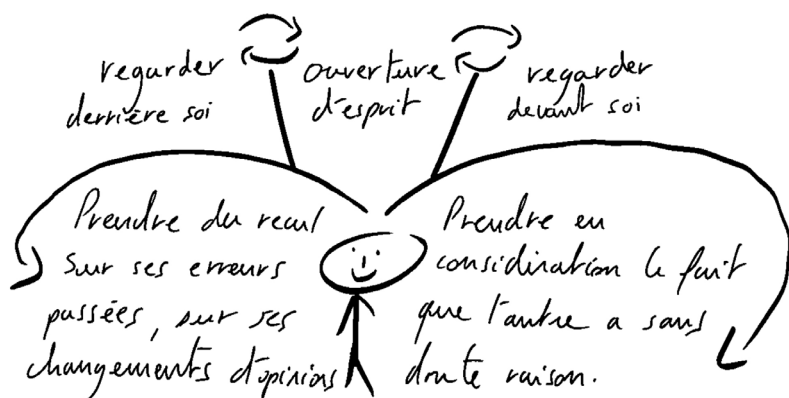 regarder
derrière soi
ouverture
d'esprit
regarder
devant soi
Prendre du recul
sur ses erreurs
passées, sur ses
changements d'opinions
Prendre en
considération le fait
que l'autre a sans
doute raison.